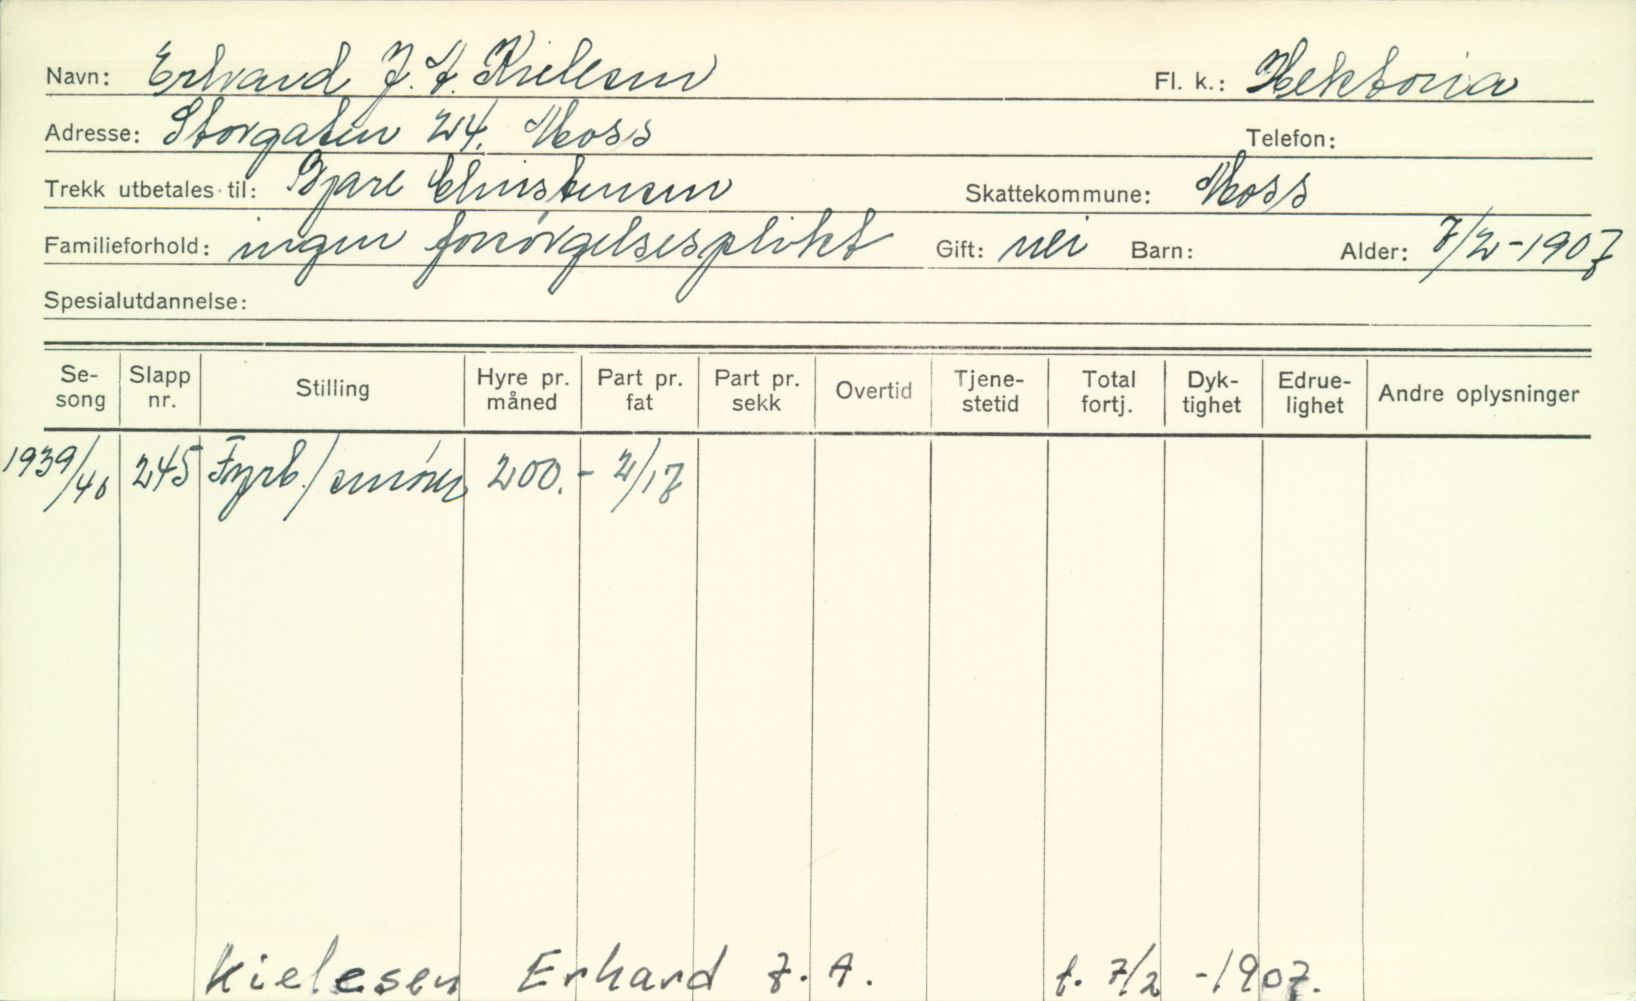 Navn: Erhard J. A. Kielesen Fl. k.: Hektoria
Adresse: Storgaten 24. Moss Telefon:
Trekk utbetales til: Bjare Christensen Skattekommune: Moss
Familieforhold: ingen forsørgelsesplikt Gift: nei Barn: Alder: 7/2-1907
Spesialutdannelse:
Se-song Slapp nr. Stilling Hyre pr. måned Part pr. fat Part pr. sekk Overtid Tjene-stetid Total fortj. Dyk-tighet Edrue-lighet Andre oplysninger
1939/40 245 Fyrb./smører 200.- 2/17
Kielesen Erhard J. A. f. 7/2 -1907.